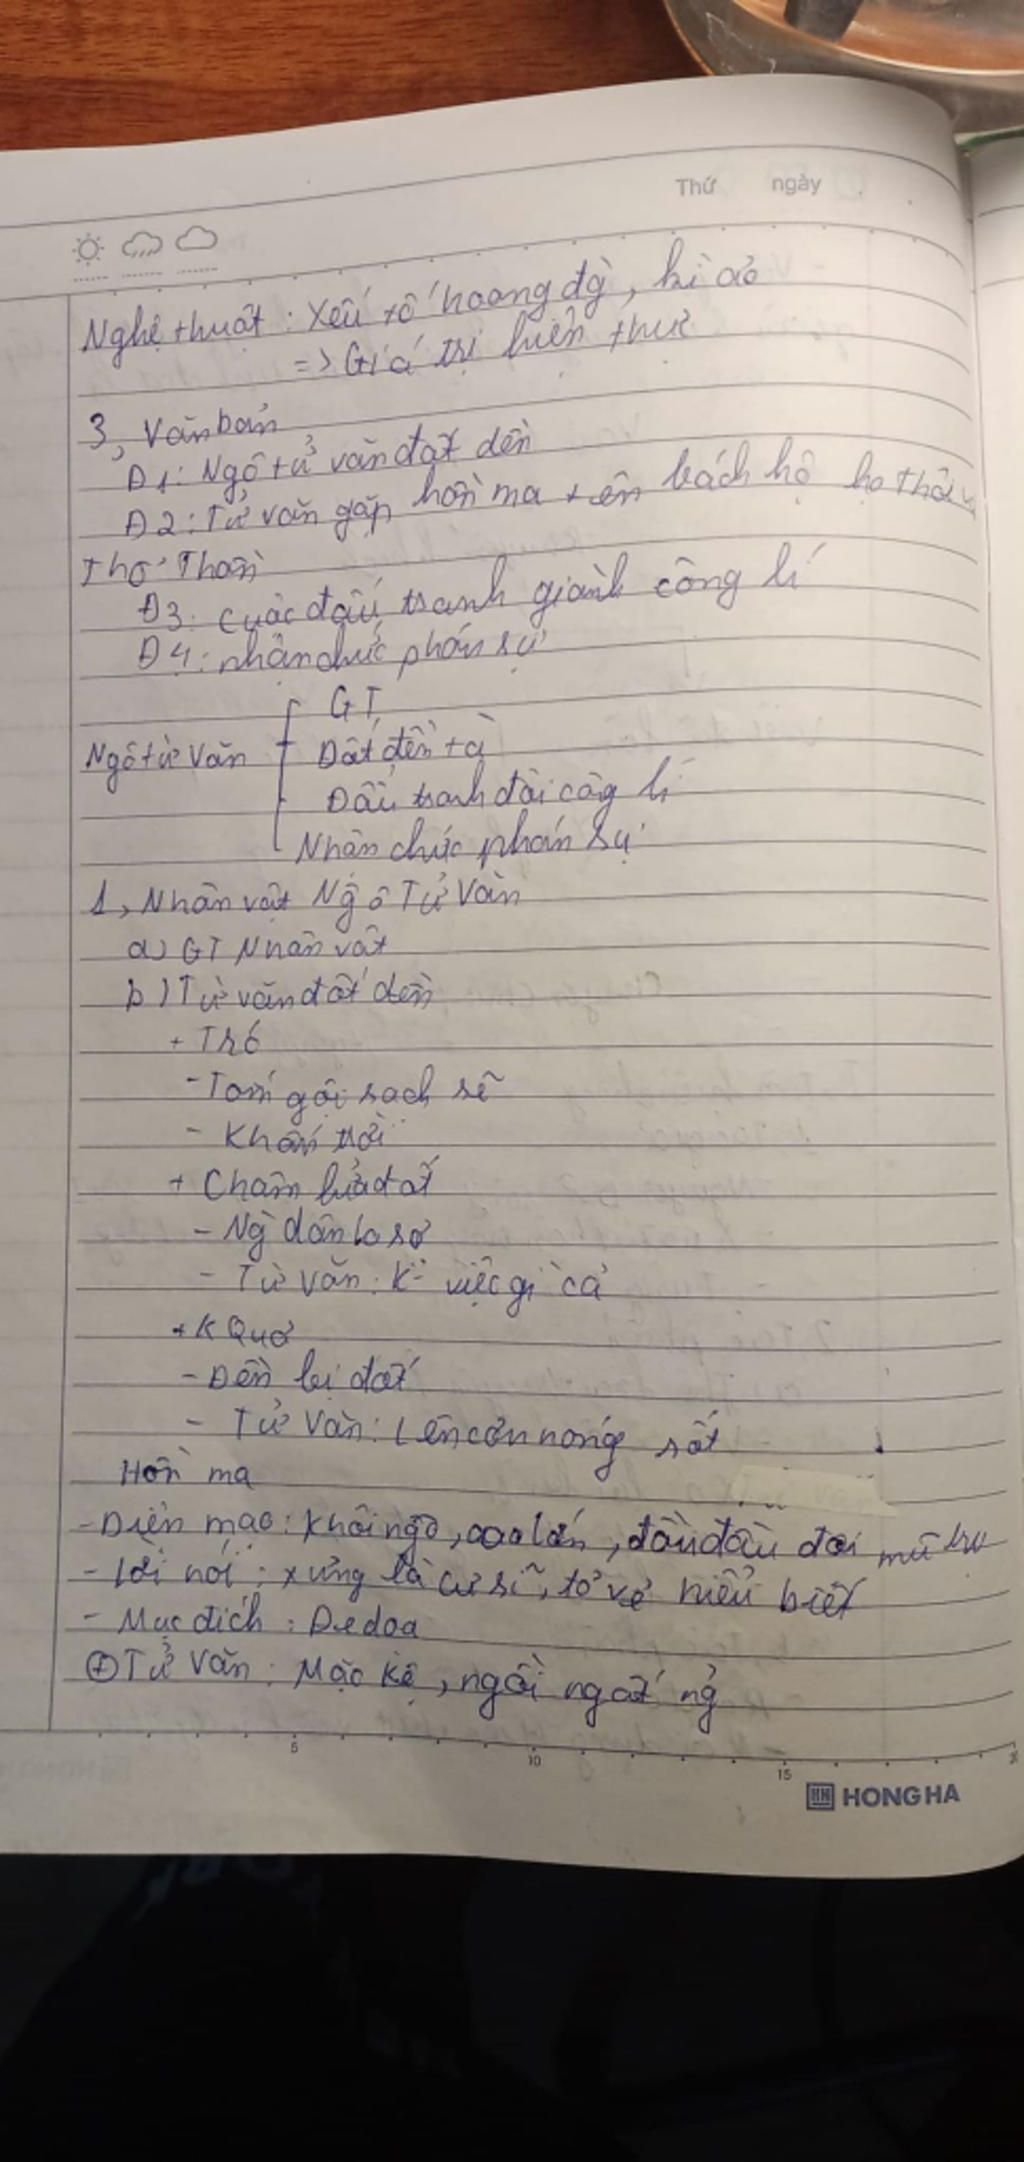 Thứ ngày
Nghệ thuật : Yếu tố hoang đg, kì ảo
=> Giá trị hiện thực
3, Văn bản
Đ1: Ngô tử văn đốt đền
Đ2: Tử văn gặp hồn ma tên bách hộ họ Thôi và
Thổ Thần
Đ3: cuộc đấu tranh giành công lí
Đ4: nhận chức phán sự
GT
Ngô tử Văn
Đốt đền tà
Đấu tranh đòi công lí
Nhận chức phán sự
1, Nhân vật Ngô Tử Văn
a) GT Nhân vật
b) Tử văn đốt đền
+ Trc
- Tắm gội sạch sẽ
- Khấn trời
+ Châm lửa đốt
- Ng dân lo sợ
- Tử Văn: K việc gì cả
+ K Quả
- Đền bị đốt
- Tử Văn: Lên cơn nóng sốt
Hồn ma
- Diện mạo: khôi ngô, cao lớn, đầu đội mũ trụ
- lời nói: xưng là cư sĩ, tỏ vẻ hiểu biết
- Mục đích: Đe doạ
⊕ Tử Văn: Mặc kệ, ngồi ngất ng
5 10 15
HONG HA